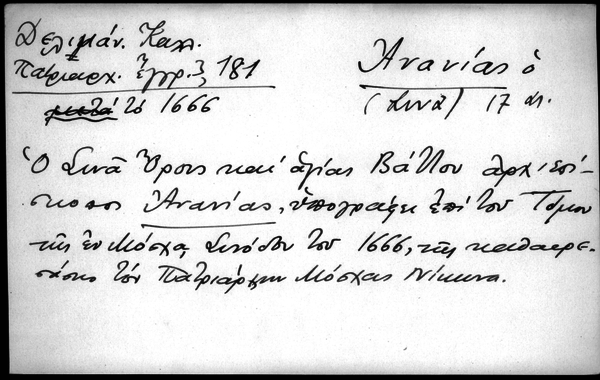 Δελιμάν. Καλ.
Πατριαρχ. ἔγγρ. 3, 181
μετά τό 1666
Ἀνανίας ὁ
(Σινᾶ) 17 αι.
Ὁ Σινᾶ Ὄρους καί ἁγίας Βάτου ἀρχιεπί-
σκοπος Ἀνανίας, ὑπογράφει ἐπί τοῦ Τόμου
τῆς ἐν Μόσχᾳ Συνόδου τοῦ 1666, τῆς καθαιρε-
σάσης τόν Πατριάρχην Μόσχας Νίκωνα.